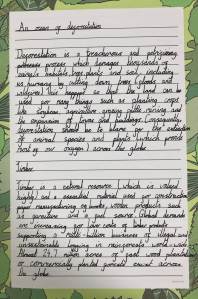 An essay of Deforestation
Deforestation is a treacherous and
process which damages thousands of
animals habitats, trees, plants and soil, including
us humans by cutting down trees, woods and
wildlife. This happens so that the land can be
used for many things such as planting crops
like soybean, agriculture, grazing cattle, mining and
the expansion of towns and buildings. Consequently,
deforestation should be to blame for the extinction
of animal species and plants (which provide
most of our oxygen) across the globe.
Timber
Timber is a natural resource (which is valued
highly) and a essential material used in construction
for manufacturing of books, timber products such
as furniture and a fuel source. Global demands
are increasing for low costs of timber products
supporting multi-billion businesses of illegal and
unsustainable logging in rainforests world-wide.
Almost 267 million acres of
or commercially planted forests exist across
the globe.